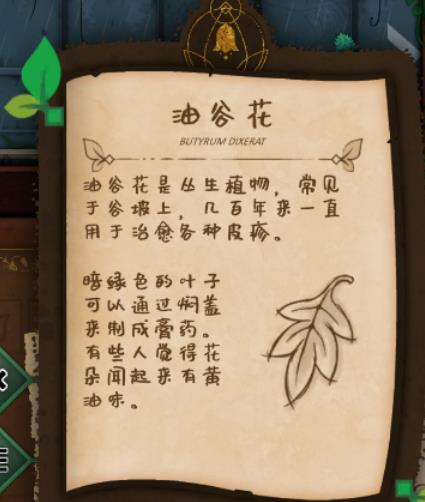 油谷花
BUTYRUM DIXERAT
油谷花是丛生植物，常见
于谷坡上，几百年来一直
用于治愈各种皮疹。
暗绿色的叶子
可以通过焖盖
来制成膏药。
有些人觉得花
朵闻起来有黄
油味。